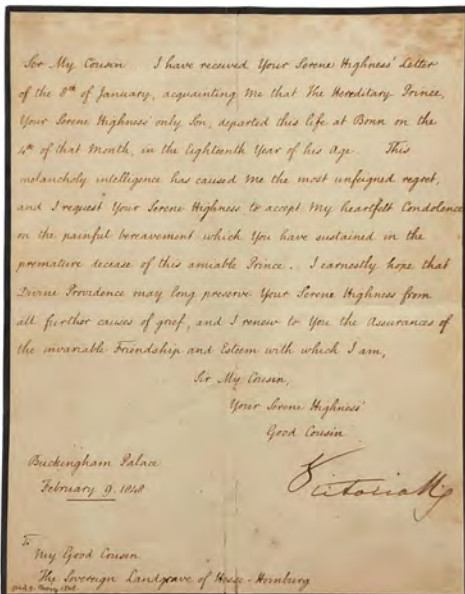 Sir My Cousin. I have received Your Serene Highness' Letter
of the 8th of January, acquainting Me that The Hereditary Prince,
Your Serene Highness' only Son, departed this life at Bonn on the
4th of that Month, in the Eighteenth Year of his Age. This
melancholy intelligence has caused Me the most unfeigned regret,
and I request Your Serene Highness to accept My heartfelt Condolence
on the painful bereavement which You have sustained in the
premature decease of this amiable Prince. I earnestly hope that
Divine Providence may long preserve Your Serene Highness from
all further causes of grief, and I renew to You the Assurances of
the invariable Friendship and Esteem with which I am,
Sir My Cousin,
Your Serene Highness'
Good Cousin
Buckingham Palace
February 9. 1848
Victoria R
To
My Good Cousin
The Sovereign Landgrave of Hesse-Homburg